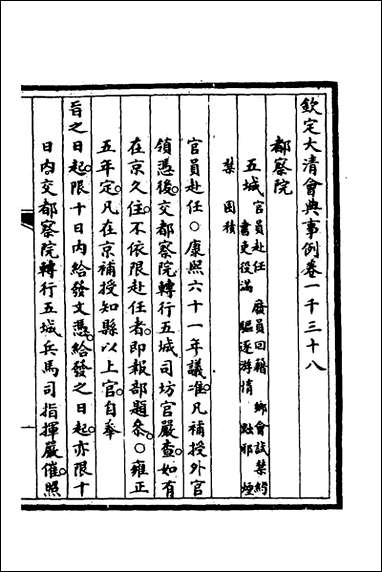 欽定大清會典事例卷一千三十八
都察院
五城 官員赴任 廢員回籍 鄉會試禁約
書吏役滿 驅逐游惰 黜邪 煙
禁 囤積
官員赴任○康熙六十一年議准。凡補授外官
領憑後。交都察院轉行五城司坊官嚴查。如有
在京久住。不依限赴任者。即報部題叅。○雍正
五年定。凡在京補授知縣以上官。自奉
旨之日起。限十日内給發文憑。給發之日起。亦限十
日内交都察院轉行五城兵馬司指揮嚴催。照